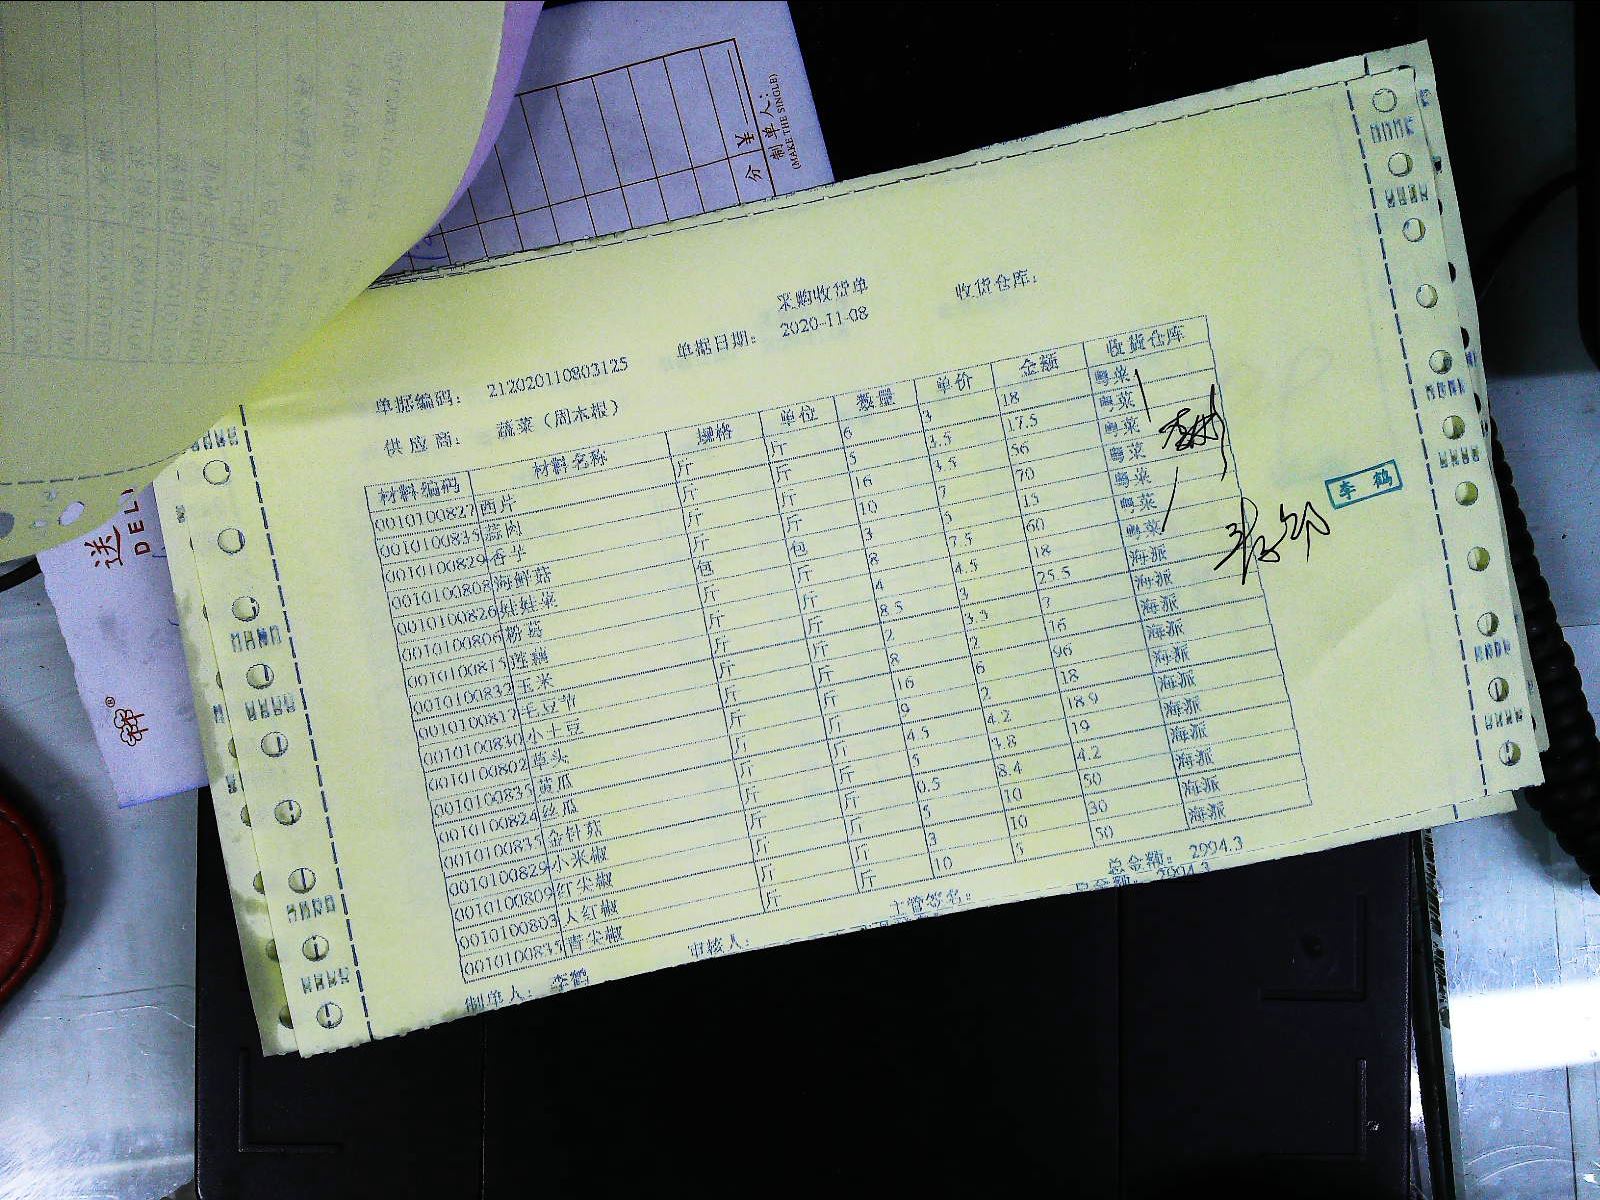 采购收货单
收货仓库：
单据日期： 2020-11-08
单据编码： 212020110803125
供应商： 蔬菜（周木根）
材料编码 材料名称 规格 单位 数量 单价 金额 收货仓库
0010100827 西芹 斤 斤 6 3 18 粤菜
0010100835 蒜肉 斤 斤 5 3.5 17.5 粤菜
0010100829 香芋 斤 斤 16 3.5 56 粤菜
0010100808 海鲜菇 斤 斤 10 7 70 粤菜
0010100826 娃娃菜 包 包 3 5 15 粤菜
0010100806 粉葛 斤 斤 8 7.5 60 粤菜
0010100815 莲藕 斤 斤 4 4.5 18 粤菜
0010100832 玉米 斤 斤 8.5 3 25.5 海派
0010100817 毛豆节 斤 斤 2 3.5 7 海派
0010100830 小土豆 斤 斤 8 2 16 海派
0010100802 草头 斤 斤 16 6 96 海派
0010100835 黄瓜 斤 斤 9 2 18 海派
0010100824 丝瓜 斤 斤 4.5 4.2 18.9 海派
0010100835 金针菇 斤 斤 5 3.8 19 海派
0010100829 小米椒 斤 斤 0.5 8.4 4.2 海派
0010100809 红尖椒 斤 斤 5 10 50 海派
0010100803 大红椒 斤 斤 3 10 30 海派
0010100835 青尖椒 斤 斤 10 5 50 海派
总金额： 2994.3
制单人： 李鹤 审核人： 主管签名：
李鹤
制单人：
(MAKE THE SINGLE)
分 ¥
送
DEL